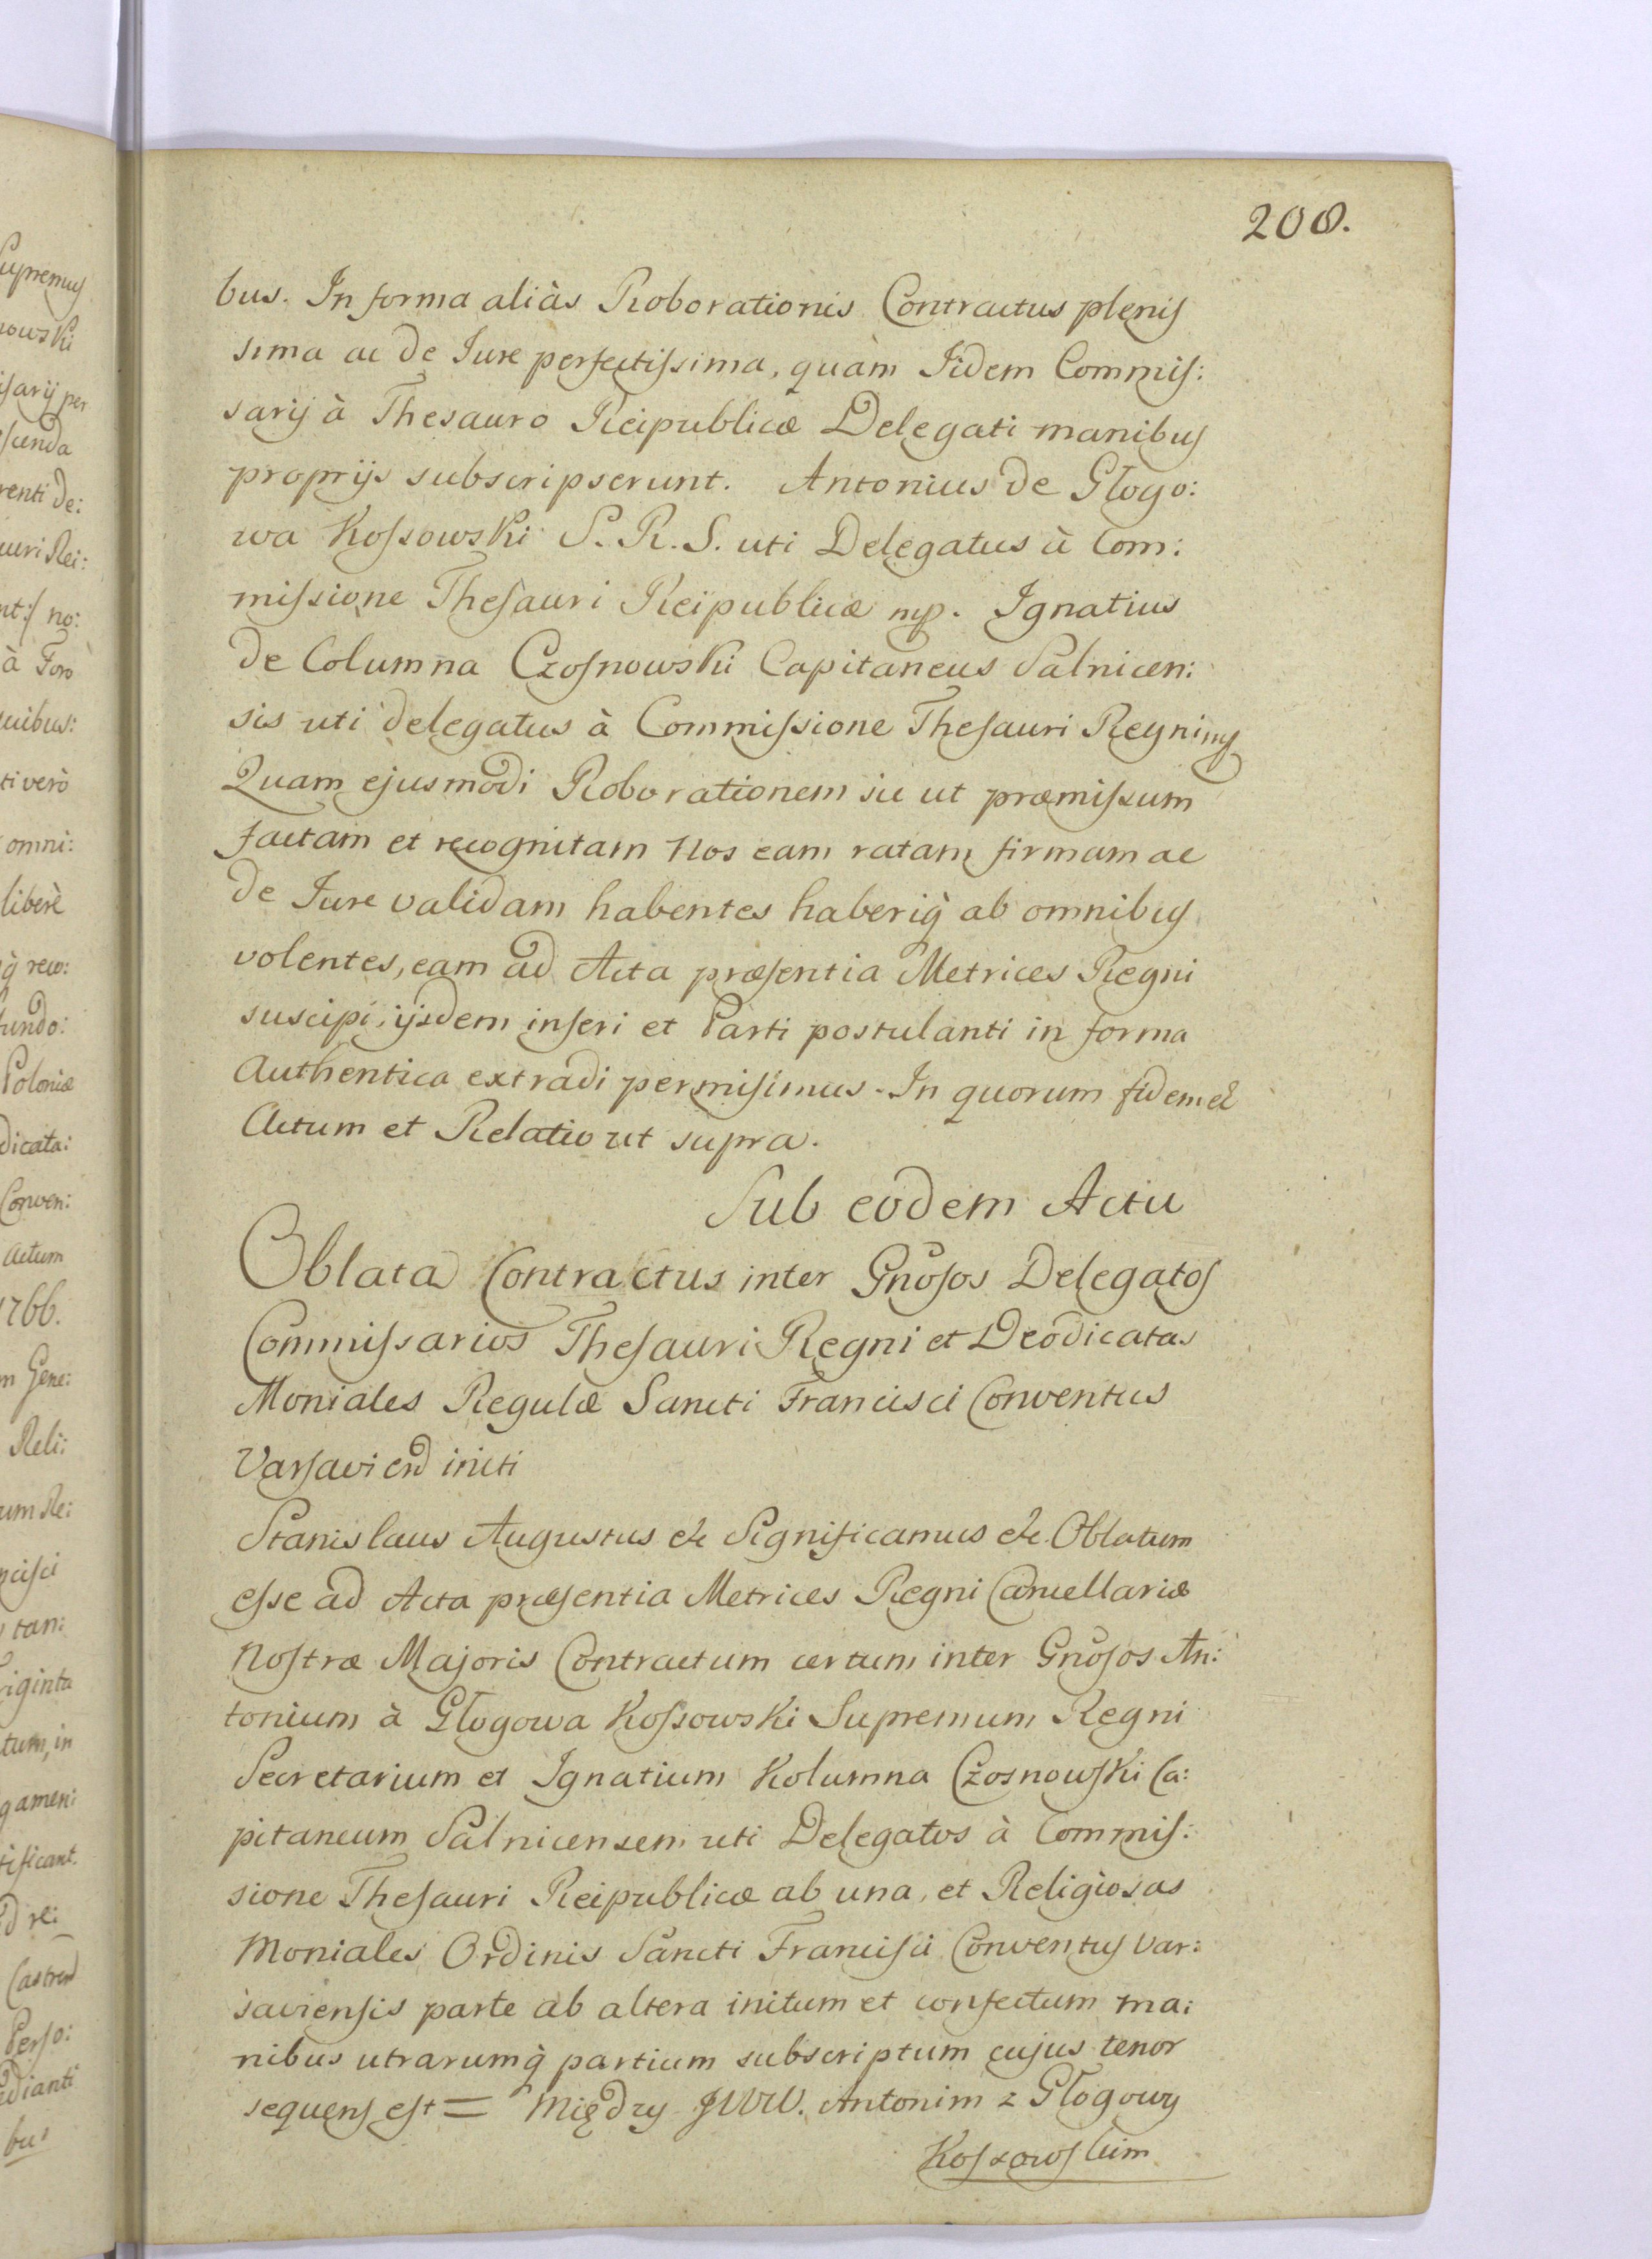 208.
bus. In forma aliàs Roborationis Contractus plenis
sima ac de Jure perfectissima, quàm Iidem Commis:
sarij à Thesauro Reipublicæ Delegati manibus
proprijs subscripserunt. Antonius de Głogo:
wa Kossowski S. R. S. uti Delegatus à Com:
missione Thesauri Reipublicæ mp. Ignatius
de Columna Czosnowski Capitaneus Salnicen:
sis uti delegatus à Commissione Thesauri Regni mp
Quam ejusmodi Roborationem sic ut præmissum
factam et recognitam Nos eam ratam firmam ac
de Jure validam habentes haberiq̀ ab omnibus
volentes, eam ad Acta præsentia Metrices Regni
suscipi, ijsdem inseri et Parti postulanti in forma
Authentica extradi permisimus. In quorum fidem et
Actum et Relatio ut supra.
Sub eodem Actu
Oblata Contractus inter Gñosos Delegatos
Commissarios Thesauri Regni et Deodicatas
Moniales Regulæ Sancti Francisci Conventus
Varsavien initi
Stanislaus Augustus etc Significamus etc. Oblatum
esse ad Acta præsentia Metrices Regni Cancellariæ
Nostræ Majoris Contractum certum inter Gñosos An:
tonium à Głogowa Kossowski Supremum Regni
Secretarium et Ignatium Kolumna Czosnowski Ca:
pitaneum Salnicensem uti Delegatos à Commis:
sione Thesauri Reipublicæ ab una, et Religiosas
Moniales Ordinis Sancti Francisci Conventus Var:
saviensis parte ab altera initum et confectum ma:
nibus utrarumq̀ partium subscriptum cujus tenor
sequens est = Między JWW. Antonim z Głogowy
Kossowskim